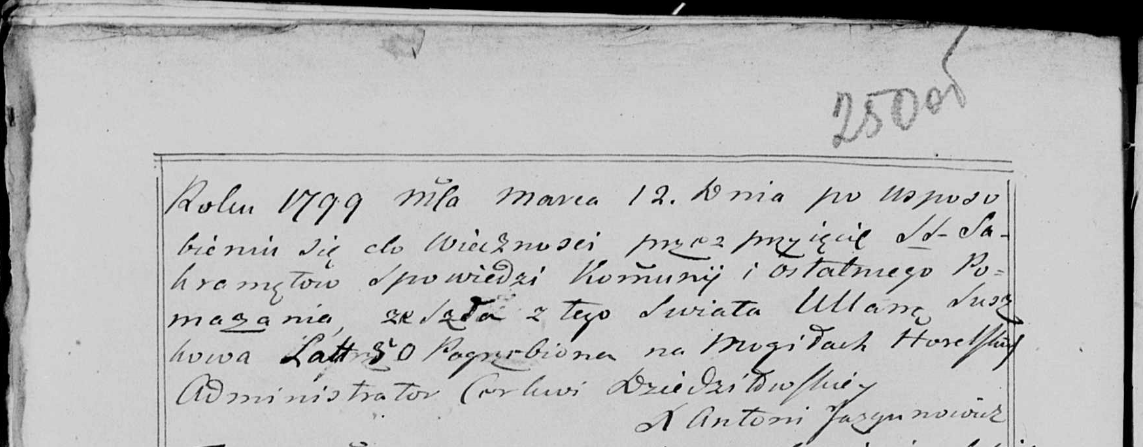 250 об
Roku 1799 mła Marca 12. Dnia po usposo
bieniu się do Wiecznosci przez przyięcię SS- Sa-
kramętow Spowiedzi Komunij i ostatniego Po=
mazania, zeszła z tego Swiata Ullana Susz
kowa Latt 50 Pogrzebiona na Mogiłach
Administrator Cerkwi Dziedziłowskiey
X Antoni Jazgunowicz